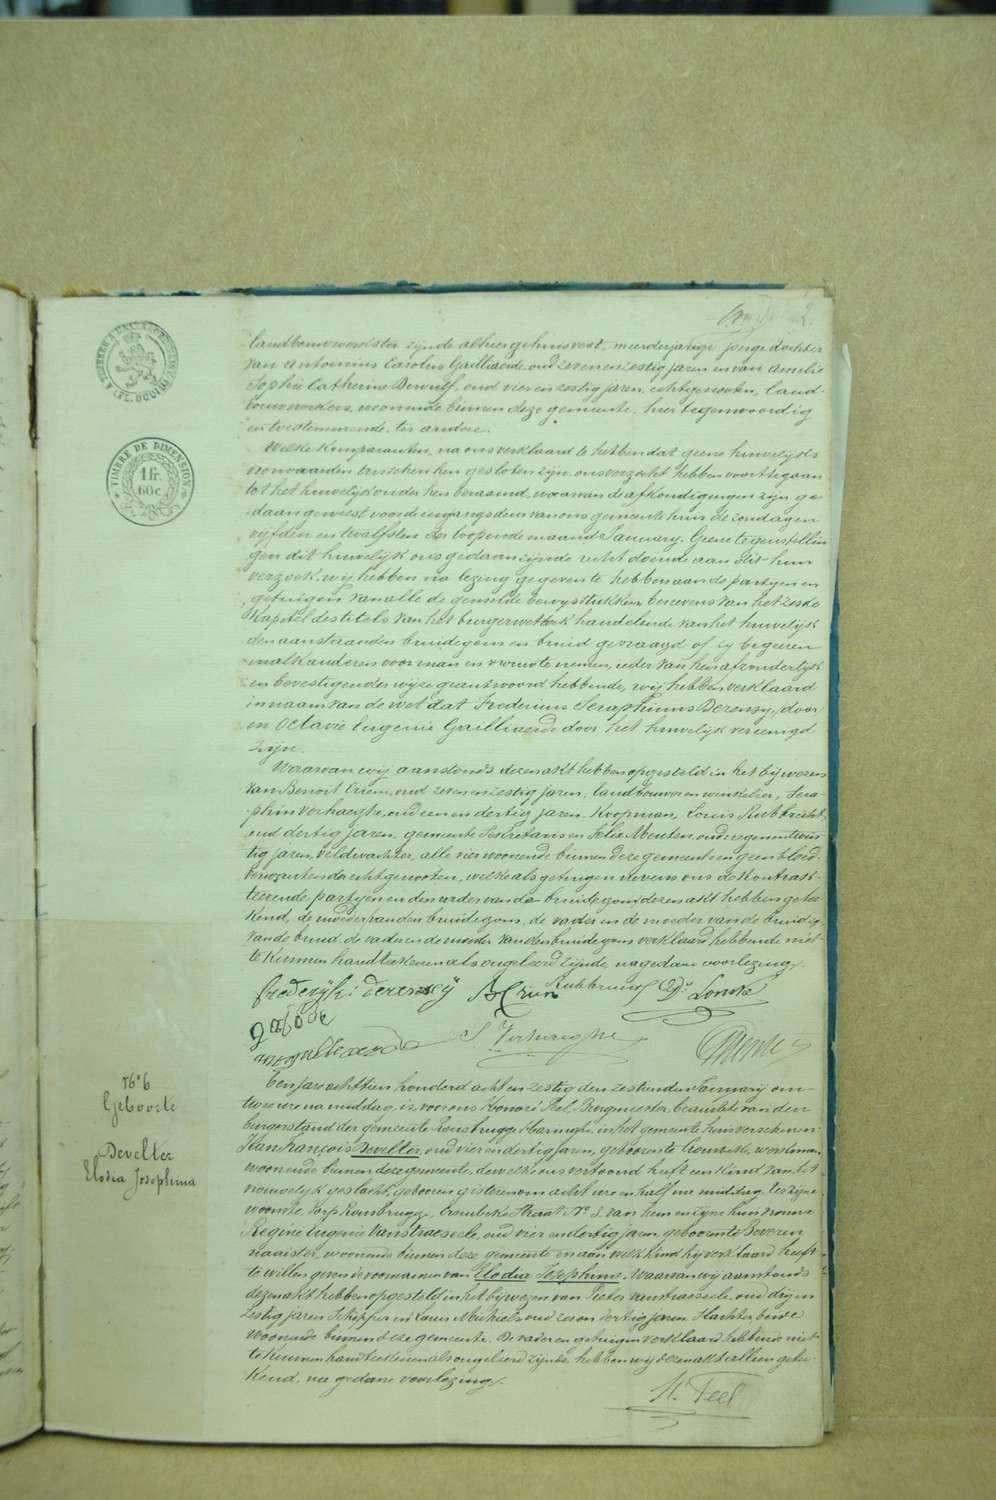 2
TIMBRE DE DIMENSION
1 fr.
60c.
landbouwwerkster zijnde alhier gehuisvest, meerderjarige jonge dochter
van Antonius Carolus Gailliaerde, oud zeven en zestig jaren en van Amelie
Sophie Catherine Dewulf, oud vier en zestig jaren, echtgenooten, land-
bouwwerkers, woonende binnen deze gemeente, hier tegenwoordig
en toestemmende, ter andere.
Welke komparanten, na ons verklaard te hebben dat geene huwelijks
voorwaarden tusschen hen gesloten zijn, ons verzocht hebben voorttegaan
tot het huwelijk onder hen beraamd, waarvan de afkondigingen zijn ge-
daan geweest voor de ingangsdeur van ons gemeente huis de zondagen
vijfden en twalfsten der loopende maand January. Geene tegenstellin
gen dit huwelijk ons gedaan zijnde recht doende aan dit hun
verzoek, wij hebben na lezing gegeven te hebben aan de partyen en
getuigen van alle de gemelde bewysstukken benevens van het zesde
Kapitel des titels van het burgerwetboek handelende van het huwelijk
den aanstaanden bruidegom en bruid gevraagd of zy begeeren
malkanderen voor man en vrouw te nemen, ieder van hen afzonderlyk
en bevestigender wijze geantwoord hebbende, wij hebben verklaard
in naam van de wet dat Frederinus Seraphinus Derensy, door,
en Octavie Eugenie Gailliaerde door het huwelijk vereenigd
zijn.
Waarvan wij aanstonds dezen akt hebben opgesteld in het bijwezen
van Benoit Criem, oud zeven en zestig jaren, landbouwer en winkelier, Sera-
phin Verhaeghe, oud een en dertig jaren, Koopman, Louis Rubbrecht,
oud dertig jaren, gemeente Sekretaris en Felix Meuten, oud negen en twin
tig jaren, veldwachter, alle vier woonende binnen deze gemeente en geen bloed-
verwanten da echtgenooten, welke als getuigen nevens ons de kontrak-
teerende partyen en den vader van de bruidegom dezen akt hebben getee
kend, de moeder van den bruidegom, de vader en de moeder van de bruid
van de bruid, de vader en de moeder van den bruidegom verklaard hebbende niet
te kunnen handteekenen als ongeleerd zijnde, na gedane voorlezing.
frederijk: derensy B Criem Rubbrecht Ds. Loncke
S Verhaeghe
No 6
Geboorte
Develter
Elodia Josephina
Een jare achttien honderd acht en zestig den zestienden January om
twee ure na middag, is voor ons Honoré Feel, Burgmeester, beambte van den
burgerstand der gemeente Rousbrugge Haringhe, in het gemeente huis verschenen:
Han François Develter, oud vier en dertig jaren, geboren te Crombeke, werkman
woonende binnen deze gemeente, dewelke ons vertoond heeft een kind van het
vrouwelijk geslacht, geboren gisteren om acht ure en half na middag, ter zijne
woonste, dorp Rousbrugge, Crombeke Straat No 8. van hem en zyne huisvrouw
Regine Eugenie Vanstraeseele, oud vier en dertig jaren, geboren te Beveren
naaister, woonende binnen deze gemeente en aan welk kind hij verklaard heeft
te willen geven de voornamen van Elodia Josephina. Waarvan wij aanstonds
dezen akt hebben opgesteld in het bijwezen van Pieter Vanstraeseele, oud drij en
zestig jaren, Schipper en Louis Michiels oud zes en dertig jaren, Slachter, beide
woonende binnen deze gemeente. De vader en getuigen verklaard hebbende niet
te kunnen handteekenen als ongeleerd zijnde, hebben wij dezen akt alleen getee-
kend, na gedane voorlezing.
H. Feel